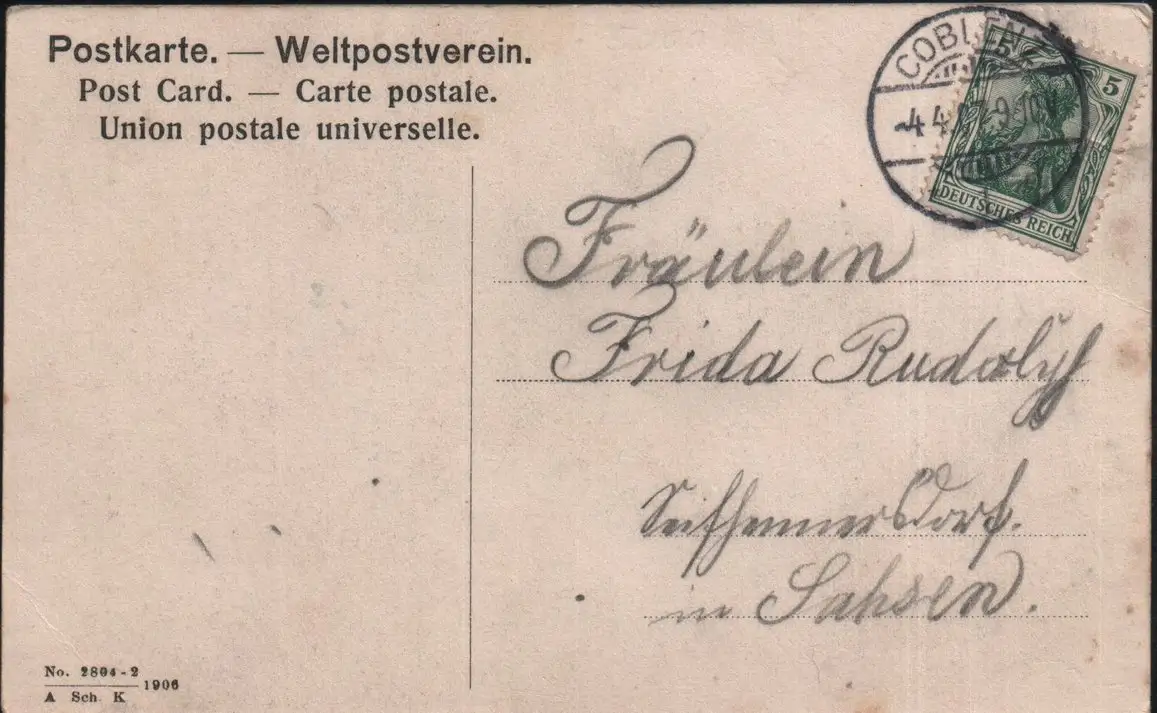 Postkarte. — Weltpostverein.
Post Card. — Carte postale.
Union postale universelle.
COBLENZ
4.4.07.9-10V
5
5
DEUTSCHES REICH
Fräulein
Frida Rudolph
Seifhennersdorf.
in Sahsen.
No. 2804-2
A Sch. K 1906